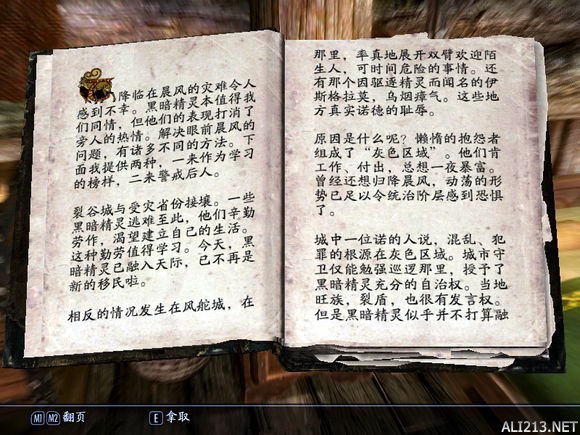 降临在晨风的灾难令人
感到不幸。黑暗精灵本值得我
们同情，但他们的表现打消了
旁人的热情。解决眼前晨风的
问题，有诸多不同的方法。下
面我提供两种，一来作为学习
的榜样，二来警戒后人。
裂谷城与受灾省份接壤。一些
黑暗精灵逃难至此，他们辛勤
劳作，渴望建立自己的生活。
这种勤劳值得学习。今天，黑
暗精灵已融入天际，已不再是
新的移民啦。
相反的情况发生在风舵城，在
那里，率真地展开双臂欢迎陌
生人，可时间危险的事情。还
有那个因驱逐精灵而闻名的伊
斯格拉莫，乌烟瘴气。这些地
方真实诺德的耻辱。
原因是什么呢？懒惰的抱怨者
组成了“灰色区域”。他们肯
工作、付出，总想一夜暴富。
曾经还想归降晨风，动荡的形
势已足以令统治阶层感到恐惧
了。
城中一位诺的人说，混乱、犯
罪的根源在灰色区域。城市守
卫仅能勉强巡逻那里，授予了
黑暗精灵充分的自治权。当地
旺族，裂盾，也很有发言权。
但是黑暗精灵似乎并不打算融
M1 M2 翻页 E 拿取
ALI213.NET